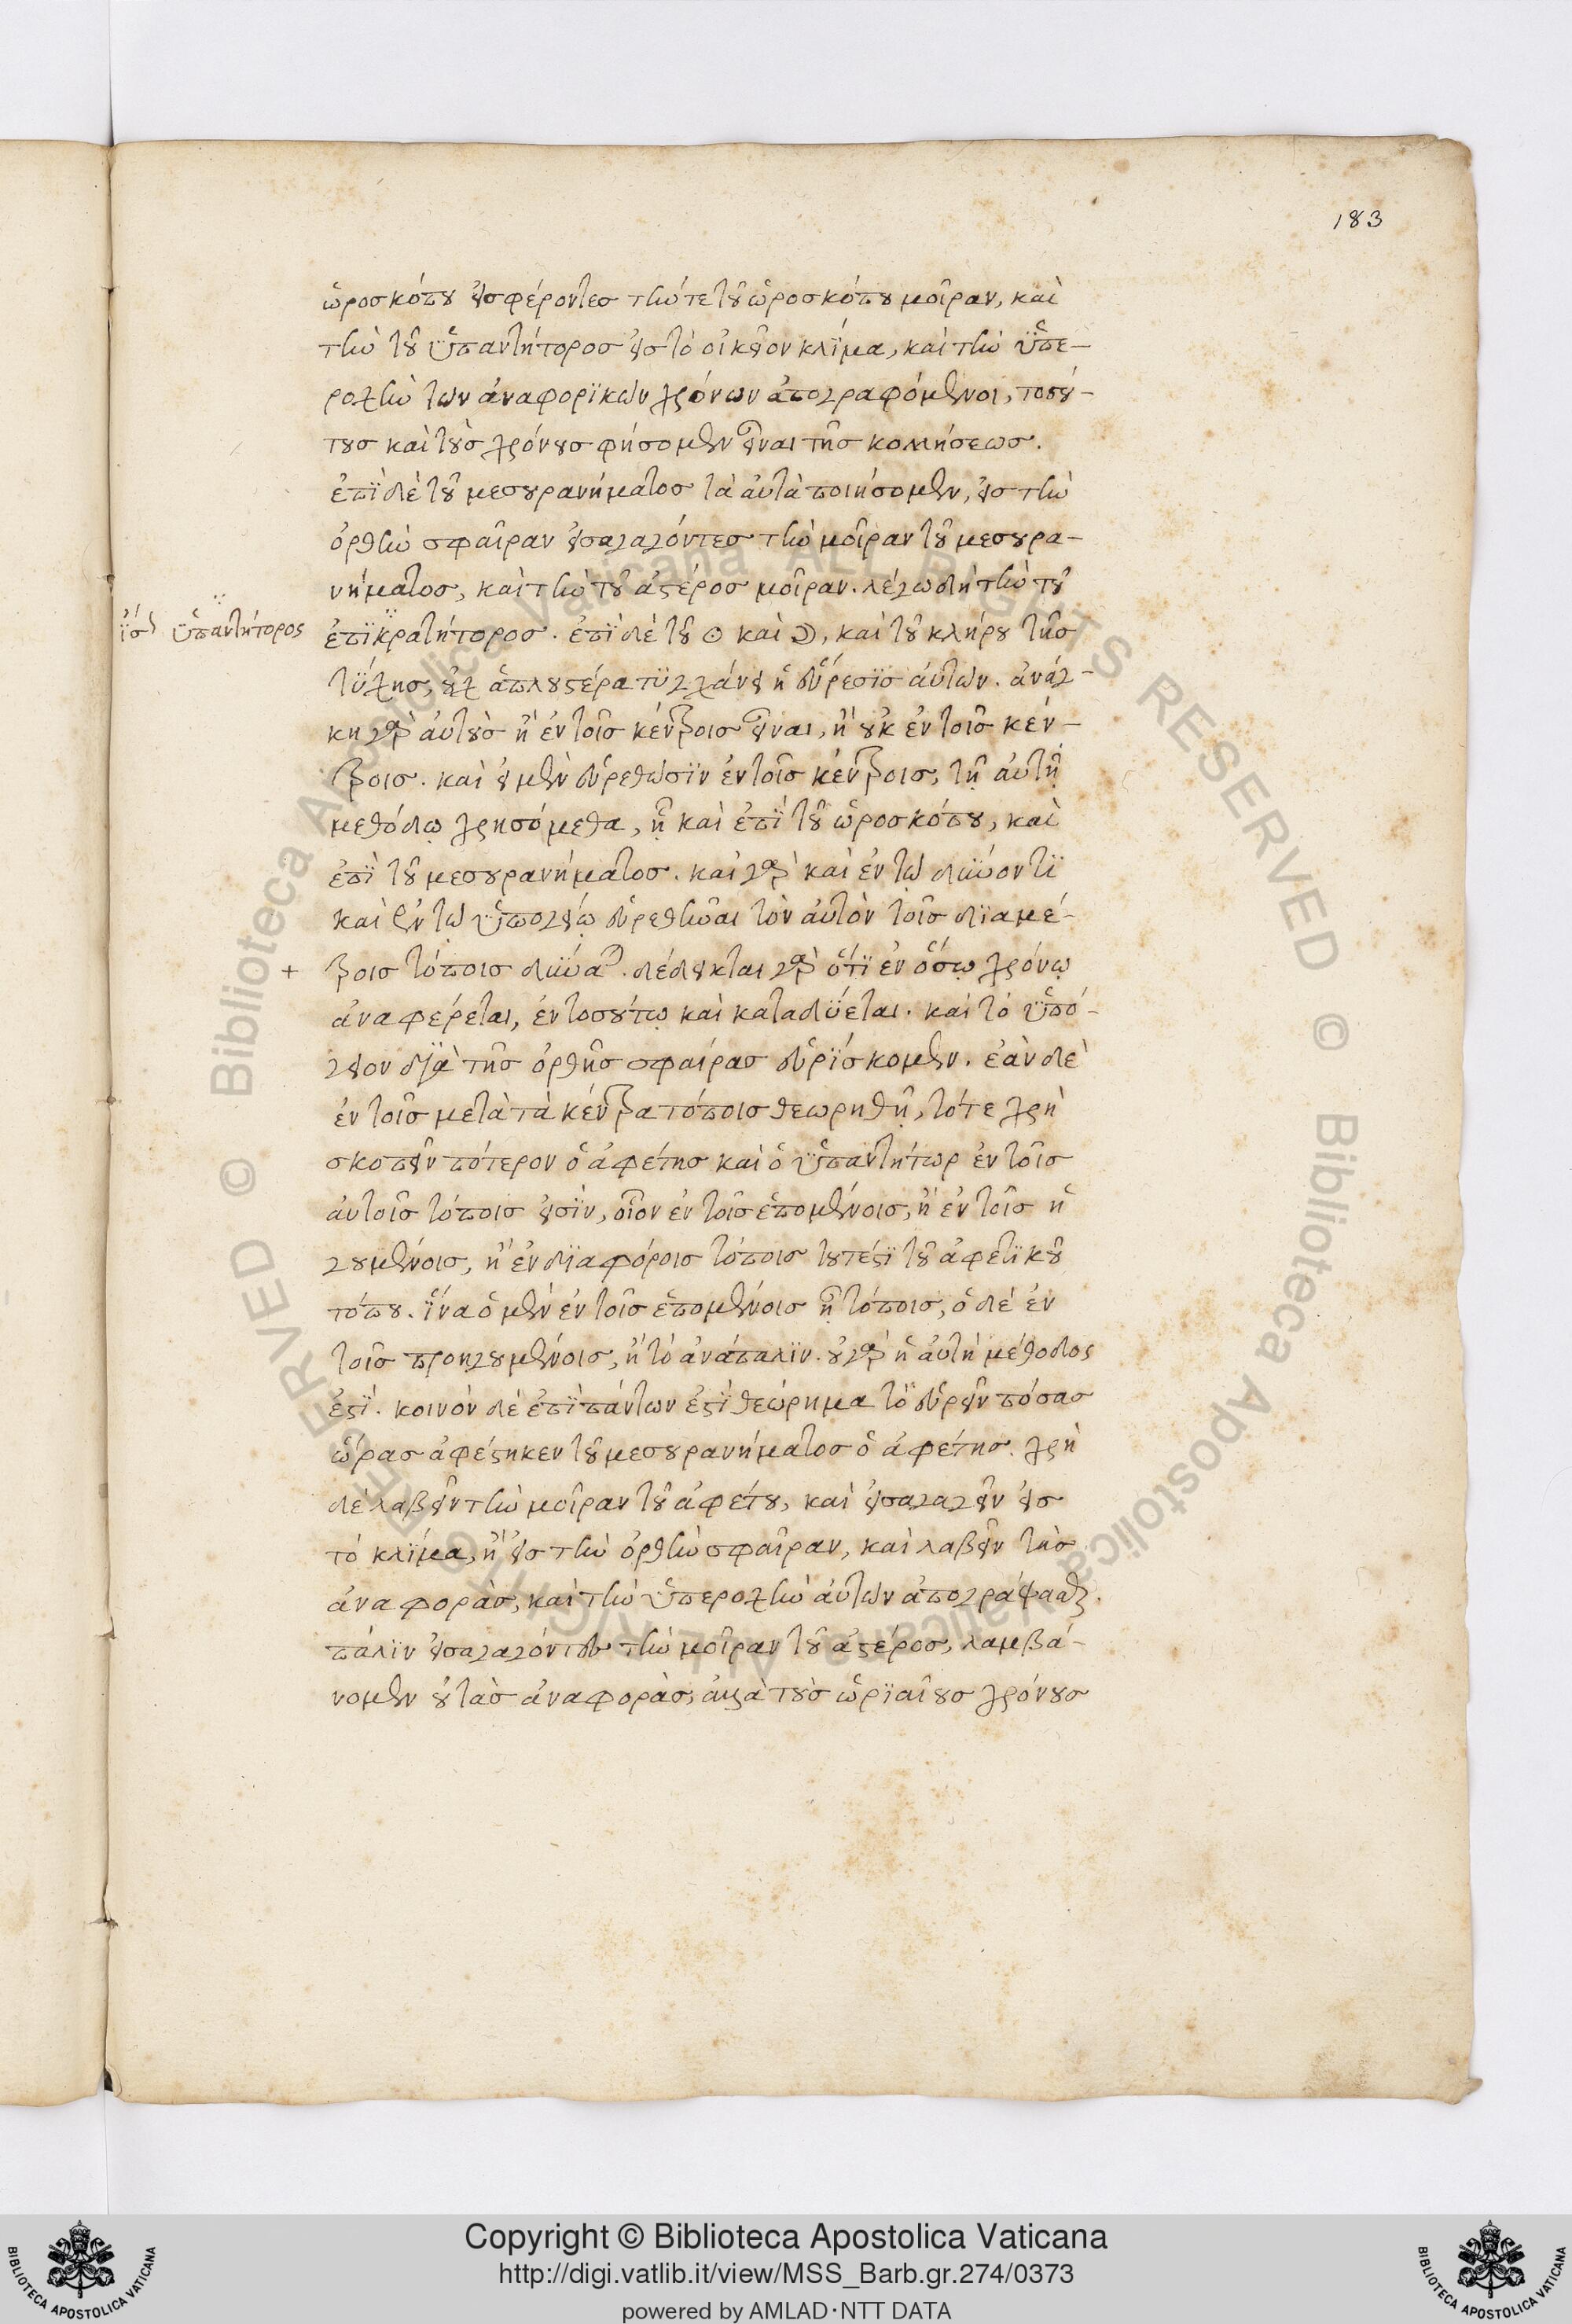 183
ὡροσκόπου εἰσφέροντες τὴν τε τοῦ ὡροσκόπου μοῖραν, καὶ
τὴν τοῦ ὑπαντήτορος εἰς τὸ οἰκεῖον κλίμα, καὶ τὴν ὑπε-
ροχὴν τῶν ἀναφορικῶν χρόνων ἀπογραφόμενοι, τοσού-
τους καὶ τοὺς χρόνους φήσομεν εἶναι τῆς κολλήσεως.
ἐπὶ δὲ τοῦ μεσουρανήματος τὰ αὐτὰ ποιήσομεν, εἰς τὴν
ὀρθὴν σφαῖραν εἰσαγαγόντες τὴν μοῖραν τοῦ μεσουρα-
νήματος, καὶ τὴν τοῦ ἀστέρος μοῖραν. λέγω δὴ τὴν τοῦ
ἴσως ὑπαντήτορος
ἐπικρατήτορος. ἐπὶ δὲ τοῦ ☉ καὶ ☽, καὶ τοῦ κλήρου τῆς
τύχης, οὐχ ἁπλουστέρα τυγχάνει ἡ εὕρεσις αὐτῶν. ἀνάγ-
κη γὰρ αὐτοὺς ἢ ἐν τοῖς κέντροις εἶναι, ἢ οὐκ ἐν τοῖς κέν-
τροις. καὶ εἰ μὲν εὑρεθῶσιν ἐν τοῖς κέντροις, τῇ αὐτῇ
μεθόδῳ χρησόμεθα, ᾗ καὶ ἐπὶ τοῦ ὡροσκόπου, καὶ
ἐπὶ τοῦ μεσουρανήματος. καὶ γὰρ καὶ ἐν τῷ δύνοντι
καὶ ἐν τῷ ὑπογείῳ εὑρεθῆναι τὸν αὐτὸν τοῖς διαμέ-
+
τροις τόποις δύνα. δέδεικται γὰρ ὅτι ἐν ὅσῳ χρόνῳ
ἀναφέρεται, ἐν τοσούτῳ καὶ καταδύεται. καὶ τὸ ὑπό-
γειον διὰ τῆς ὀρθῆς σφαίρας εὑρίσκομεν. ἐὰν δὲ
ἐν τοῖς μετὰ τὰ κέντρα τόποις θεωρηθῇ, τότε χρὴ
σκοπεῖν πότερον ὁ ἀφέτης καὶ ὁ ὑπαντήτωρ ἐν τοῖς
αὐτοῖς τόποις εἰσὶν, οἷον ἐν τοῖς ἑπομένοις, ἢ ἐν τοῖς ἡ
γουμένοις, ἢ ἐν διαφόροις τόποις τουτέστι τοῦ ἀφετικοῦ
τόπου. ἵνα ὁ μὲν ἐν τοῖς ἑπομένοις ᾖ τόποις, ὁ δὲ ἐν
τοῖς προηγουμένοις, ἢ τὸ ἀνάπαλιν. οὐ γὰρ ἡ αὐτὴ μέθοδος
ἐστὶ. κοινὸν δὲ ἐπὶ πάντων ἐστὶ θεώρημα τὸ εὑρεῖν πόσας
ὥρας ἀφέστηκεν τοῦ μεσουρανήματος ὁ ἀφέτης. χρὴ
δὲ λαβεῖν τὴν μοῖραν τοῦ ἀφέτου, καὶ εἰσαγαγεῖν εἰς
τὸ κλίμα, ἢ εἰς τὴν ὀρθὴν σφαῖραν, καὶ λαβεῖν τὰς
ἀναφοράς, καὶ τὴν ὑπεροχὴν αὐτῶν ἀπογράψασθαι.
πάλιν εἰσαγαγόντες τὴν μοῖραν τοῦ ἀστέρος, λαμβά-
νομεν οὐ τὰς ἀναφορὰς, ἀλλὰ τοὺς ὡριαίους χρόνους